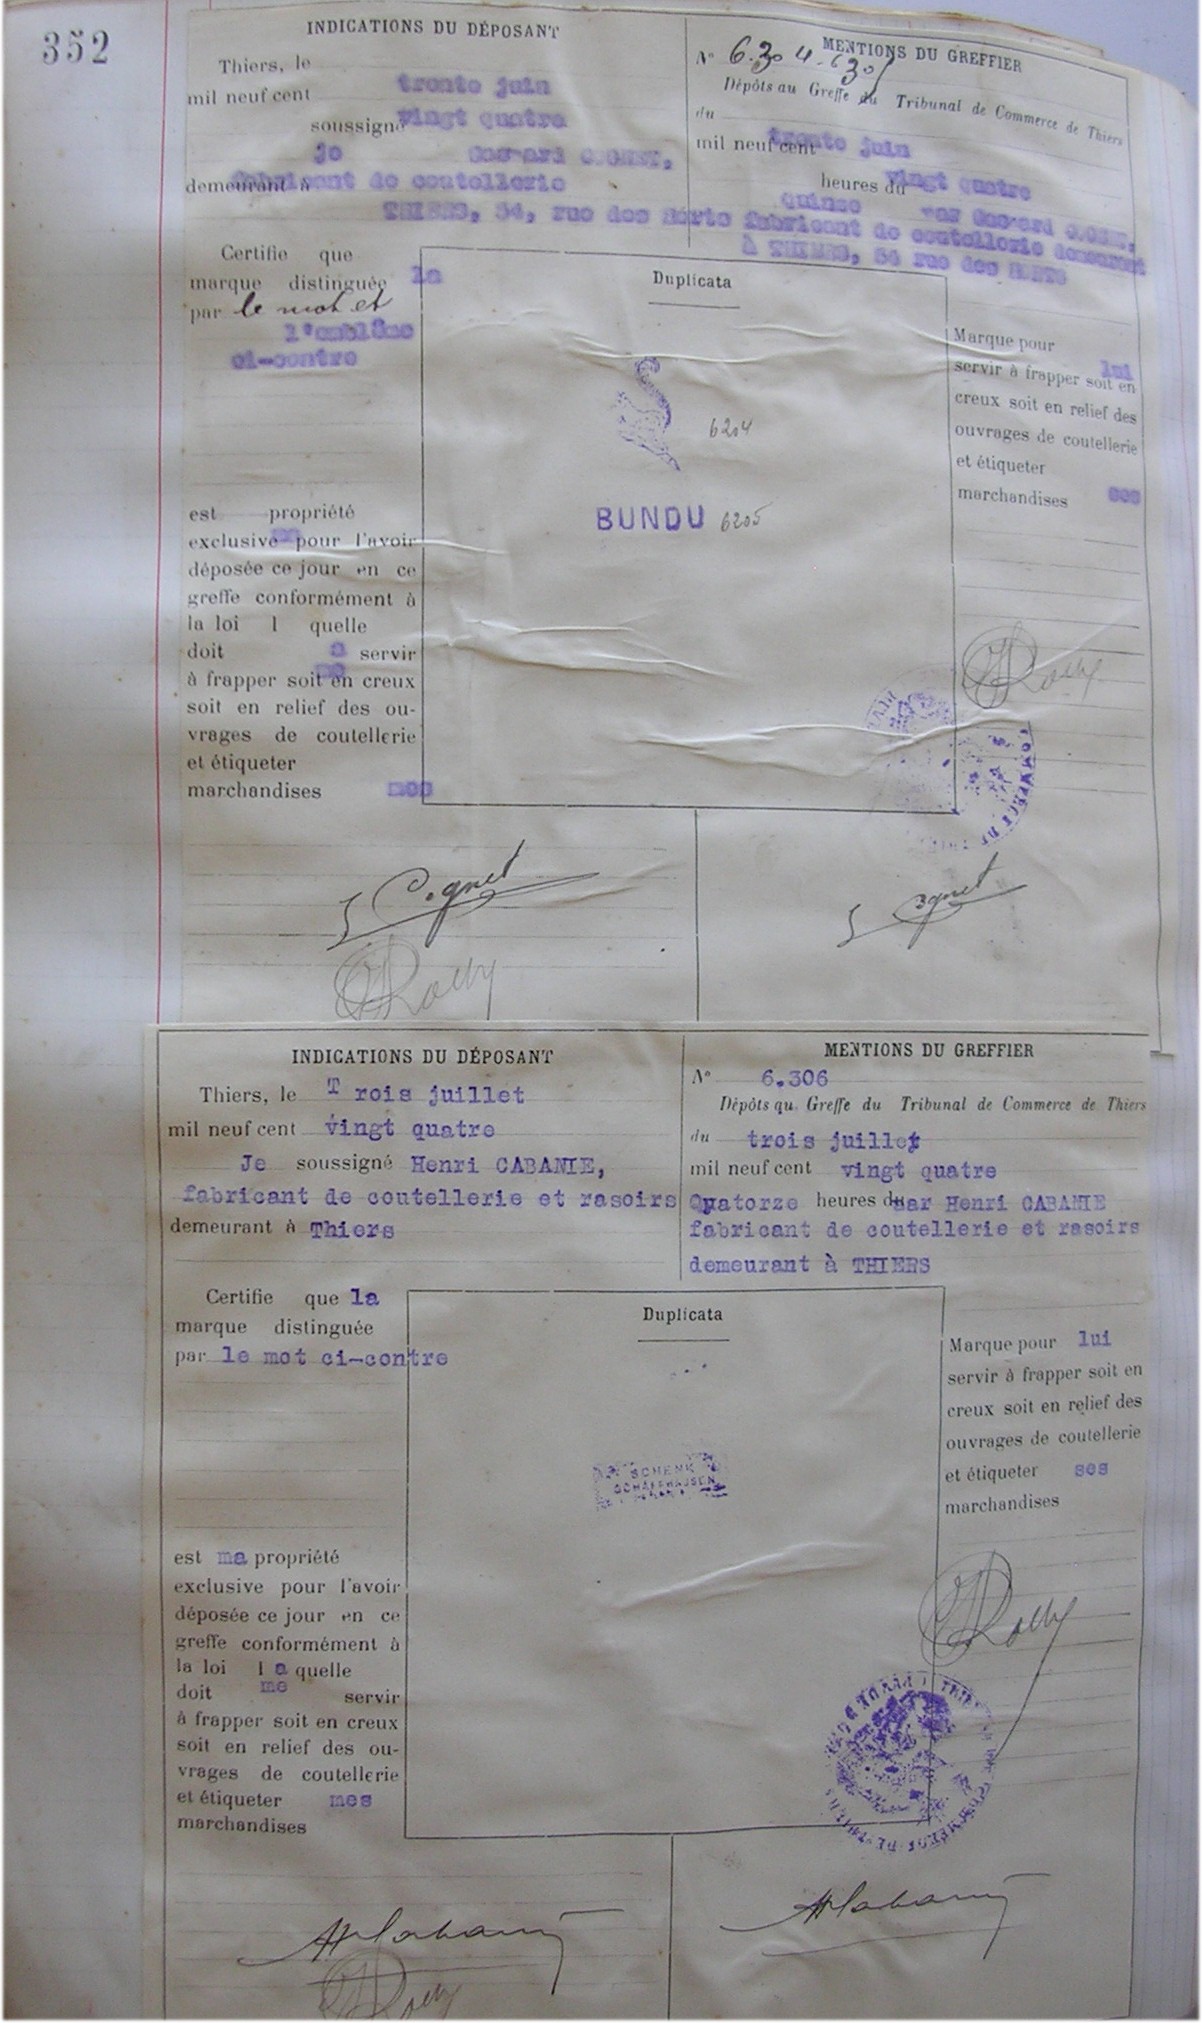 352
INDICATIONS DU DÉPOSANT
Thiers, le
trente juin
mil neuf cent
vingt quatre
soussigné
je Gaspard COGNET,
fabricant de coutellerie
demeurant à
THIERS, 34, rue des Horts
Certifie que
la
marque distinguée
par le mot et
l'emblême
ci-contre
est propriété
exclusive pour l'avoir
déposée ce jour en ce
greffe conformément à
la loi l quelle
doit a servir
me
à frapper soit en creux
soit en relief des ou-
vrages de coutellerie
et étiqueter
marchandises mes
MENTIONS DU GREFFIER
N° 6.304-6305
Dépôts au Greffe du Tribunal de Commerce de Thiers
du
trente juin
mil neuf cent
vingt quatre
heures du
quinze par Gaspard COGNET,
fabricant de coutellerie demeurant
à THIERS, 34 rue des HORTS
Duplicata
6204
BUNDU 6205
Marque pour
lui
servir à frapper soit en
creux soit en relief des
ouvrages de coutellerie
et étiqueter
marchandises ses
COMMERCE DE
Cognet
Cognet
INDICATIONS DU DÉPOSANT
Thiers, le Trois juillet
mil neuf cent vingt quatre
Je soussigné Henri CABANIE,
fabricant de coutellerie et rasoirs
demeurant à Thiers
Certifie que la
marque distinguée
par le mot ci-contre
est ma propriété
exclusive pour l'avoir
déposée ce jour en ce
greffe conformément à
la loi l a quelle
doit me servir
à frapper soit en creux
soit en relief des ou-
vrages de coutellerie
et étiqueter mes
marchandises
MENTIONS DU GREFFIER
N° 6.306
Dépôts au Greffe du Tribunal de Commerce de Thiers
du trois juillet
mil neuf cent vingt quatre
Quatorze heures du par Henri CABANIE
fabricant de coutellerie et rasoirs
demeurant à THIERS
Duplicata
SCHENK
SCHAFFHAUSEN
Marque pour lui
servir à frapper soit en
creux soit en relief des
ouvrages de coutellerie
et étiqueter ses
marchandises
HCabanie
HCabanie